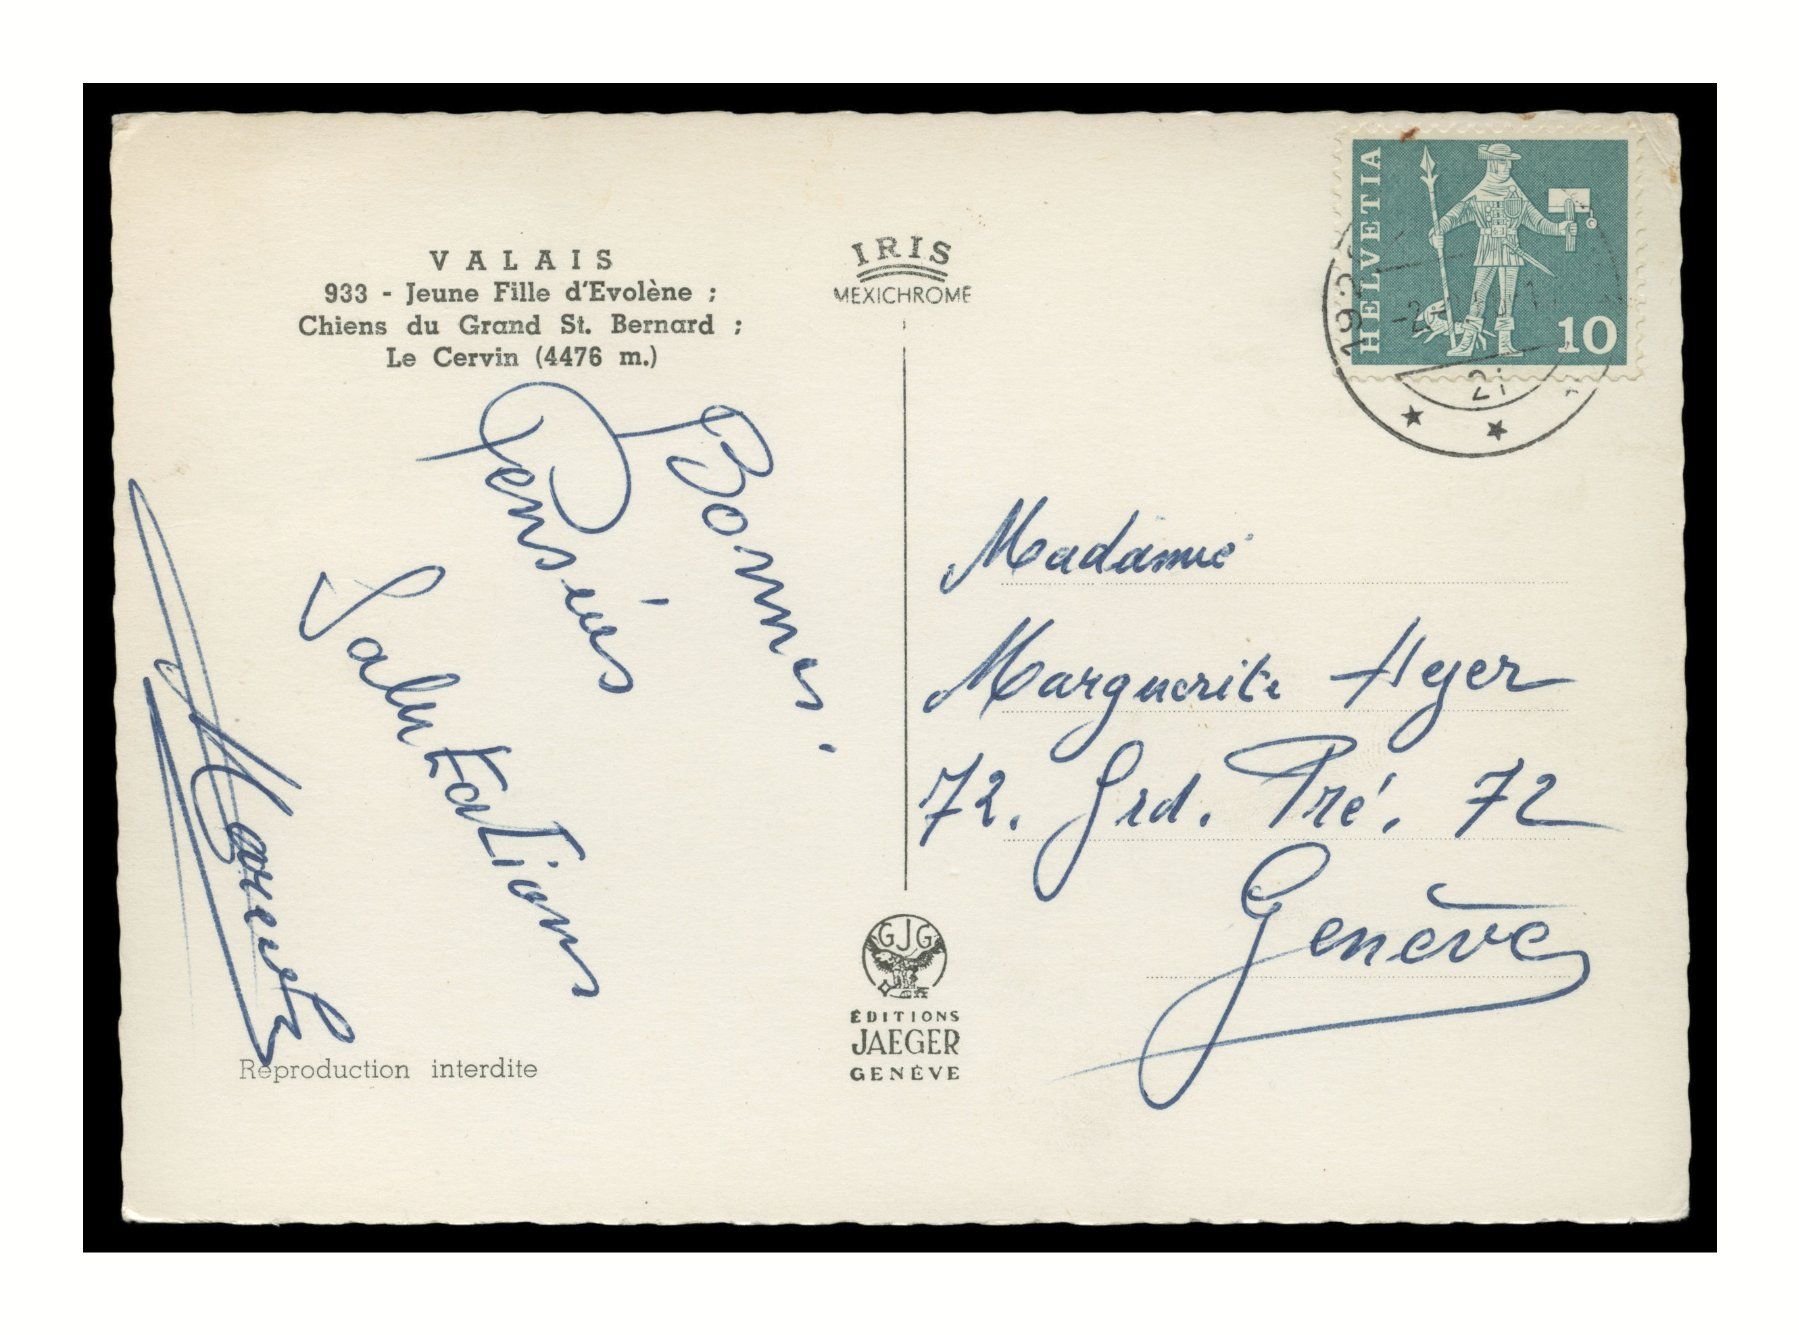 VALAIS
933 - Jeune Fille d'Evolène ;
Chiens du Grand St. Bernard ;
Le Cervin (4476 m.)
Bonnes
Pensées
Salutations
Reproduction interdite
IRIS
MEXICHROME
GJG
ÉDITIONS
JAEGER
GENÈVE
HELVETIA
10
21
Madame
Marguerite Heyer
72. Grd. Pré. 72
Genève